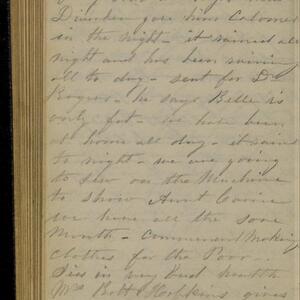 Dinner gave him Calomel
in the night - it rained all
night and has been raining
all to day - sent for Dr
Rogers - he says Belle is
only fat - he has been
at home all day - it rains
to night - we are going
to sew on the Machine
to show Aunt Carrie
we have all the sore
Mouth - commenced making
clothes for the Poor
is in very bad health
Mrs Bott Hopkins gives